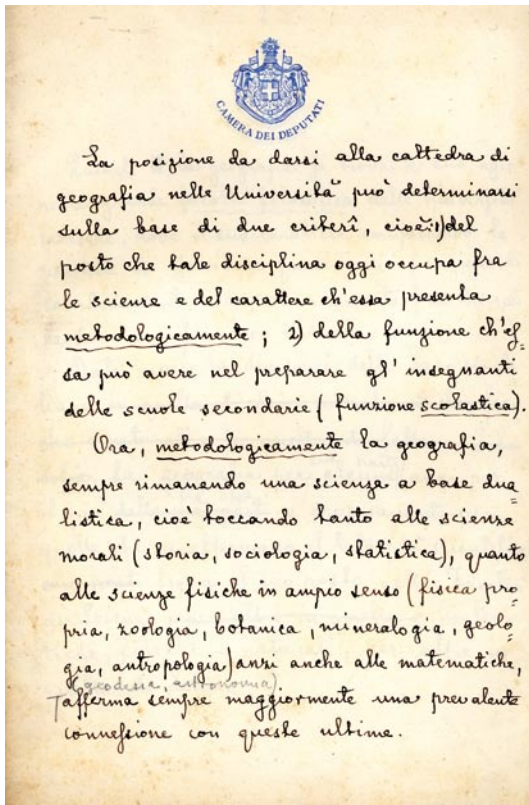 CAMERA DEI DEPUTATI
La posizione da darsi alla cattedra di
geografia nelle Università può determinarsi
sulla base di due criterî, cioè: 1) del
posto che tale disciplina oggi occupa fra
le scienze e del carattere ch'essa presenta
metodologicamente; 2) della funzione ch'es=
sa può avere nel preparare gl'insegnanti
delle scuole secondarie (funzione scolastica).
Ora, metodologicamente la geografia,
sempre rimanendo una scienza a base dua
listica, cioè toccando tanto alle scienze
morali (storia, sociologia, statistica), quanto
alle scienze fisiche in ampio senso (fisica pro
pria, zoologia, botanica, mineralogia, geolo
gia, antropologia) anzi anche alle matematiche,
(geodesia, astronomia)
afferma sempre maggiormente una prevalente
connessione con queste ultime.